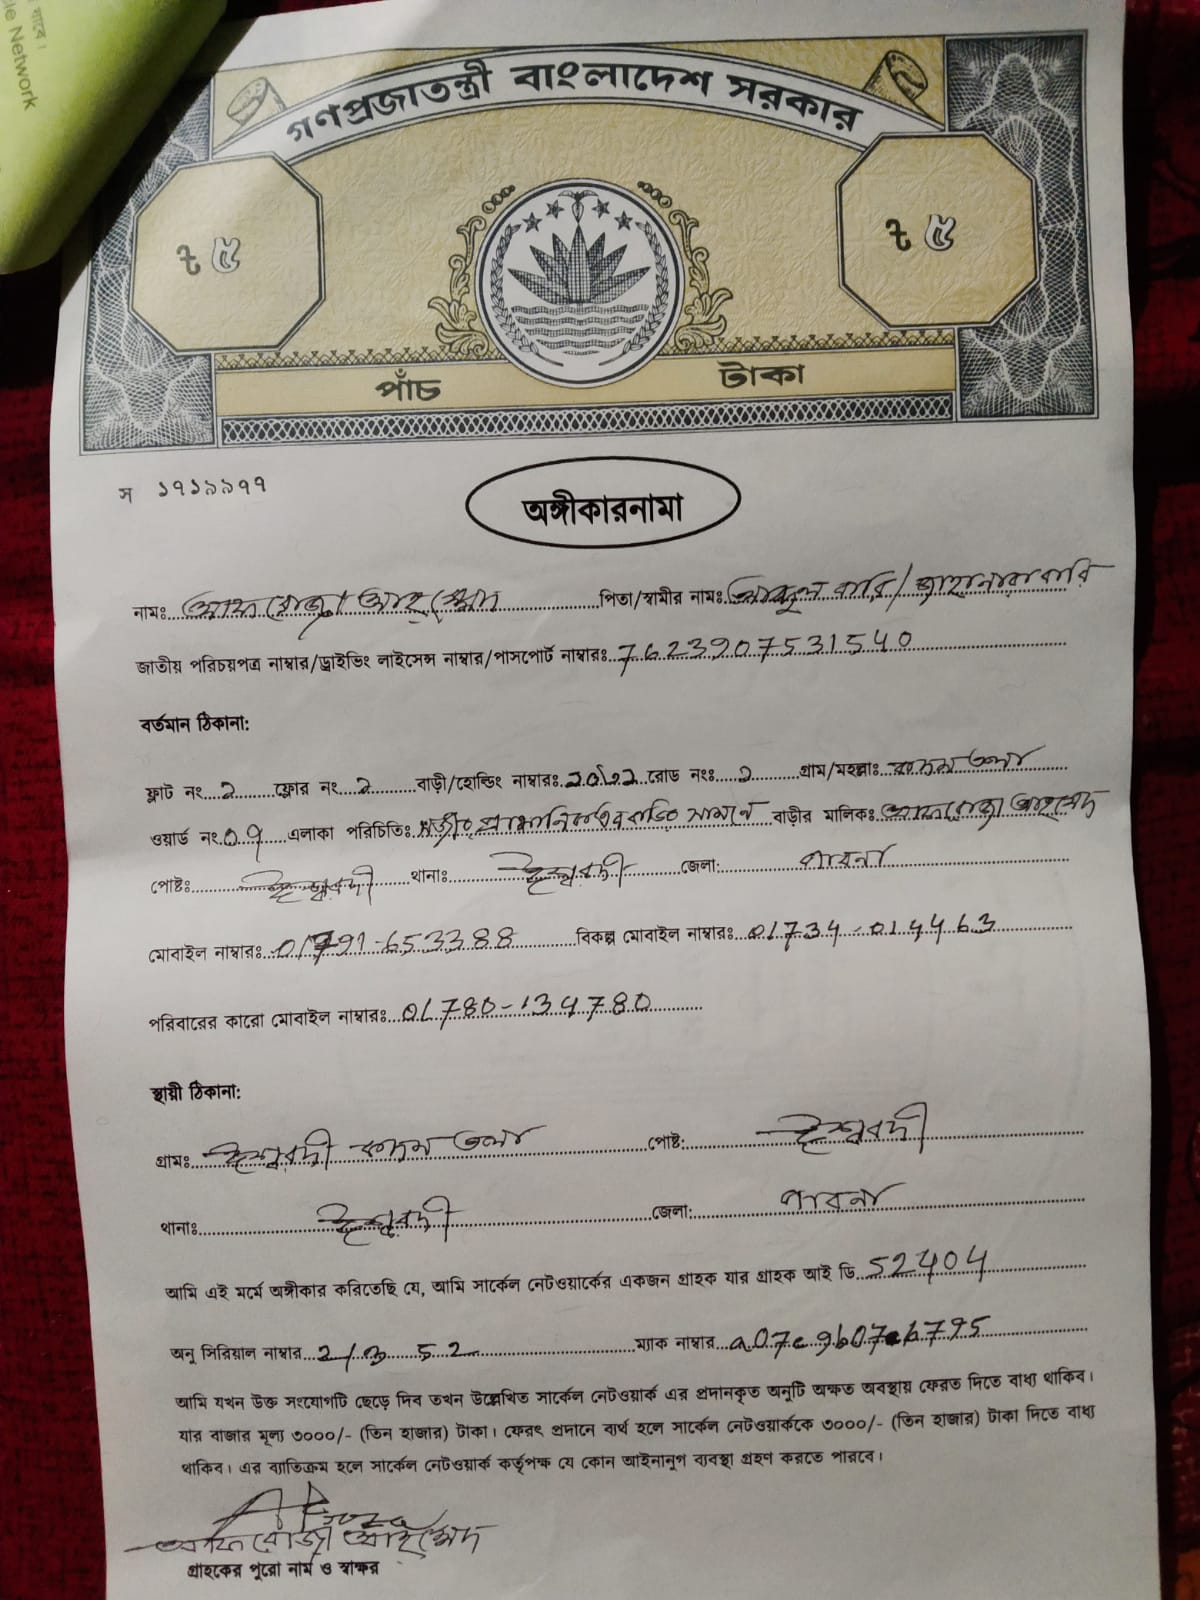 যাবে।
le Network
গণপ্রজাতন্ত্রী বাংলাদেশ সরকার
৳ ৫ ৳ ৫
পাঁচ টাকা
স ১৭১৯৯৭৭
অঙ্গীকারনামা
নামঃ আফরোজা আহম্মেদ পিতা/স্বামীর নামঃ
জাতীয় পরিচয়পত্র নাম্বার/ড্রাইভিং লাইসেন্স নাম্বার/পাসপোর্ট নাম্বারঃ 7623907531540
বর্তমান ঠিকানা:
ফ্লাট নং ২ ফ্লোর নং ২ বাড়ী/হোল্ডিং নাম্বারঃ রোড নংঃ ২ গ্রাম/মহল্লাঃ কদমতলা
ওয়ার্ড নং 09 এলাকা পরিচিতিঃ সামনে বাড়ীর মালিকঃ আফরোজা আহমেদ
পোষ্টঃ ঈশ্বরদী থানাঃ ঈশ্বরদী জেলা: পাবনা
মোবাইল নাম্বারঃ 01791-653388 বিকল্প মোবাইল নাম্বারঃ 01734-014463
পরিবারের কারো মোবাইল নাম্বারঃ 01780-134780
স্থায়ী ঠিকানা:
গ্রামঃ ঈশ্বরদী কদমতলা পোষ্ট: ঈশ্বরদী
থানাঃ ঈশ্বরদী জেলা: পাবনা
আমি এই মর্মে অঙ্গীকার করিতেছি যে, আমি সার্কেল নেটওয়ার্কের একজন গ্রাহক যার গ্রাহক আই ডি 52404
অনু সিরিয়াল নাম্বার ম্যাক নাম্বার
আমি যখন উক্ত সংযোগটি ছেড়ে দিব তখন উল্লেখিত সার্কেল নেটওয়ার্ক এর প্রদানকৃত অনুটি অক্ষত অবস্থায় ফেরত দিতে বাধ্য থাকিব।
যার বাজার মূল্য ৩০০০/- (তিন হাজার) টাকা। ফেরৎ প্রদানে ব্যর্থ হলে সার্কেল নেটওয়ার্ককে ৩০০০/- (তিন হাজার) টাকা দিতে বাধ্য
থাকিব। এর ব্যাতিক্রম হলে সার্কেল নেটওয়ার্ক কর্তৃপক্ষ যে কোন আইনানুগ ব্যবস্থা গ্রহণ করতে পারবে।
আফরোজা আহম্মেদ
গ্রাহকের পুরো নাম ও স্বাক্ষর